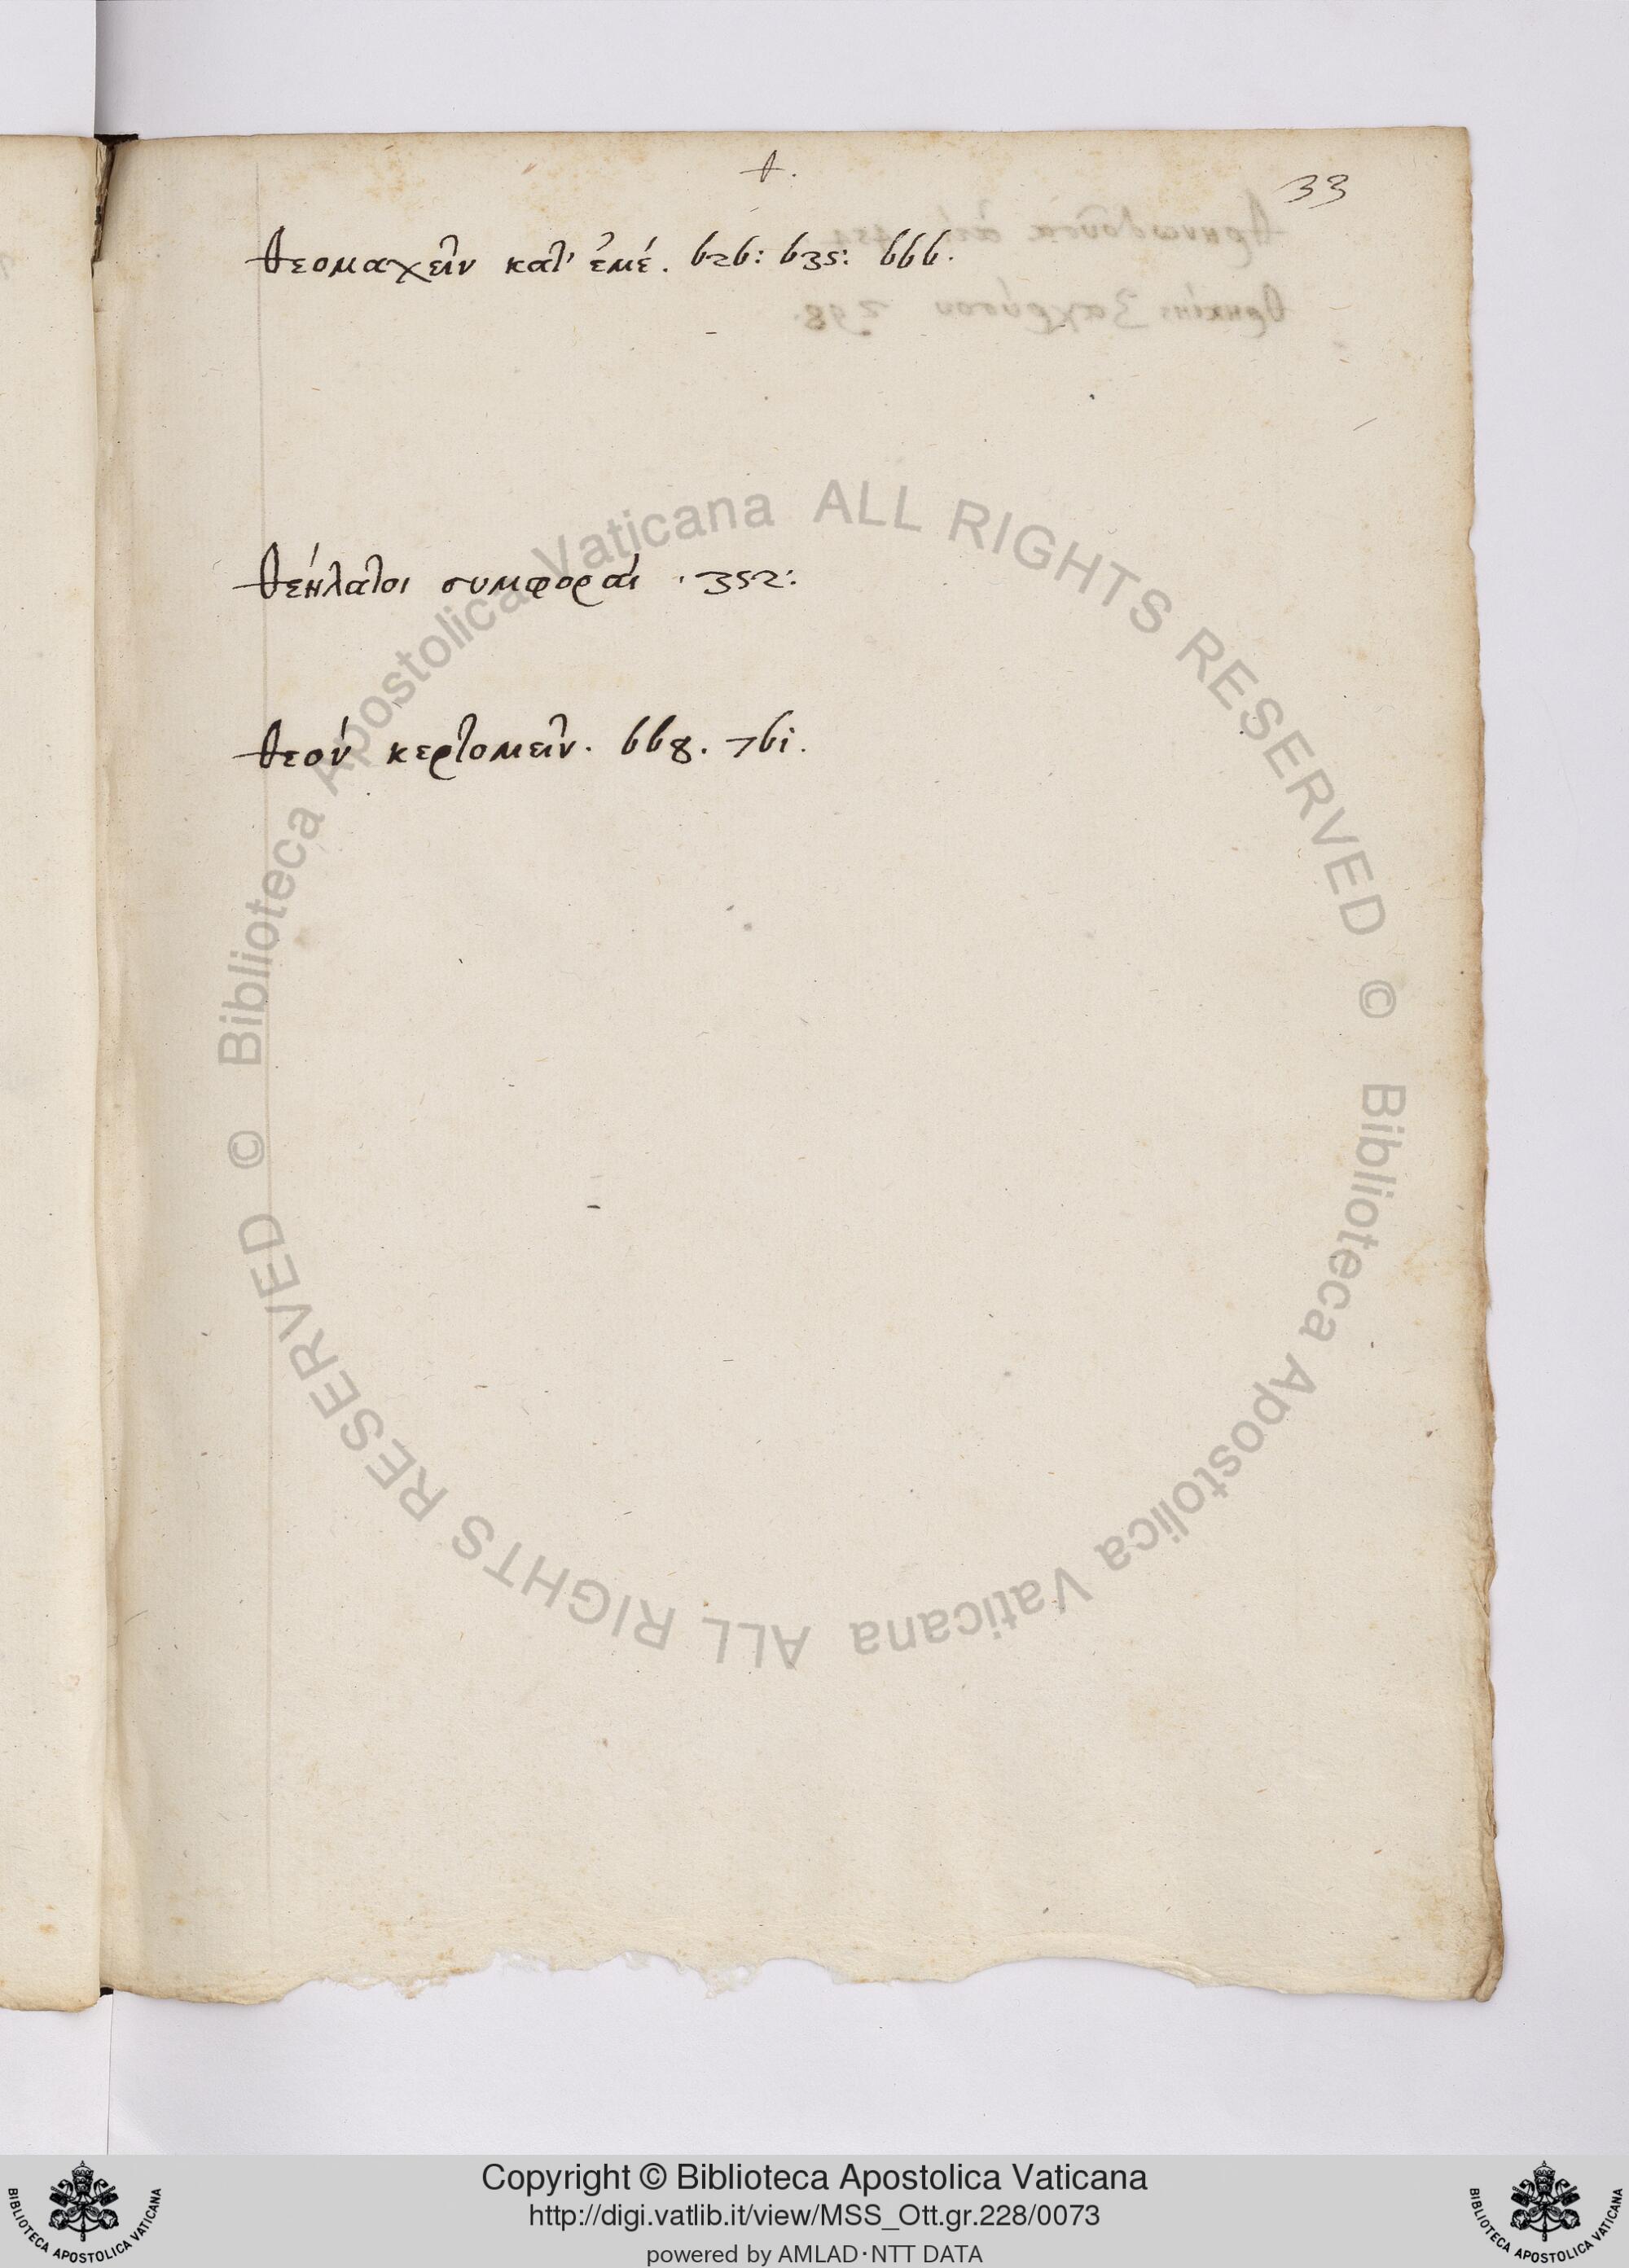 θ.
33
θεομαχεῖν κατ' ἐμέ. 626: 635: 666.
θεήλατοι συμφοραί . 352:
θεόν κερτομεῖν. 668. 761.
© Biblioteca Apostolica Vaticana ALL RIGHTS RESERVED
© Biblioteca Apostolica Vaticana ALL RIGHTS RESERVED
Copyright © Biblioteca Apostolica Vaticana
http://digi.vatlib.it/view/MSS_Ott.gr.228/0073
powered by AMLAD·NTT DATA
BIBLIOTECA APOSTOLICA VATICANA
BIBLIOTECA APOSTOLICA VATICANA